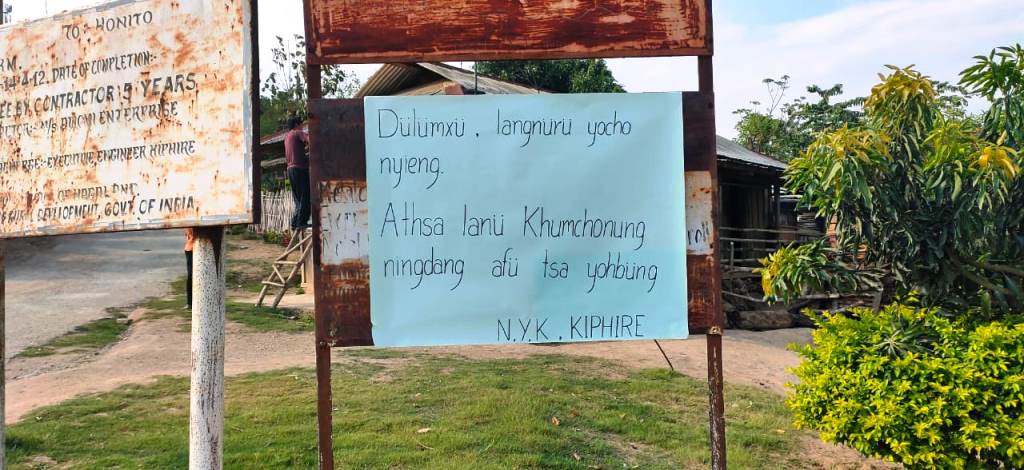 TO :- HONITO
DATE OF COMPLETION:-
CONTRACTOR 5 YEARS
ENTERPRISE
EXECUTIVE ENGINEER KIPHIRE
GOVT. OF INDIA
Dülümxü, langnürü yocho
nyieng.
Athsa lanü Khumchonung
ningdang afü tsa yohbüng
N.Y.K. KIPHIRE